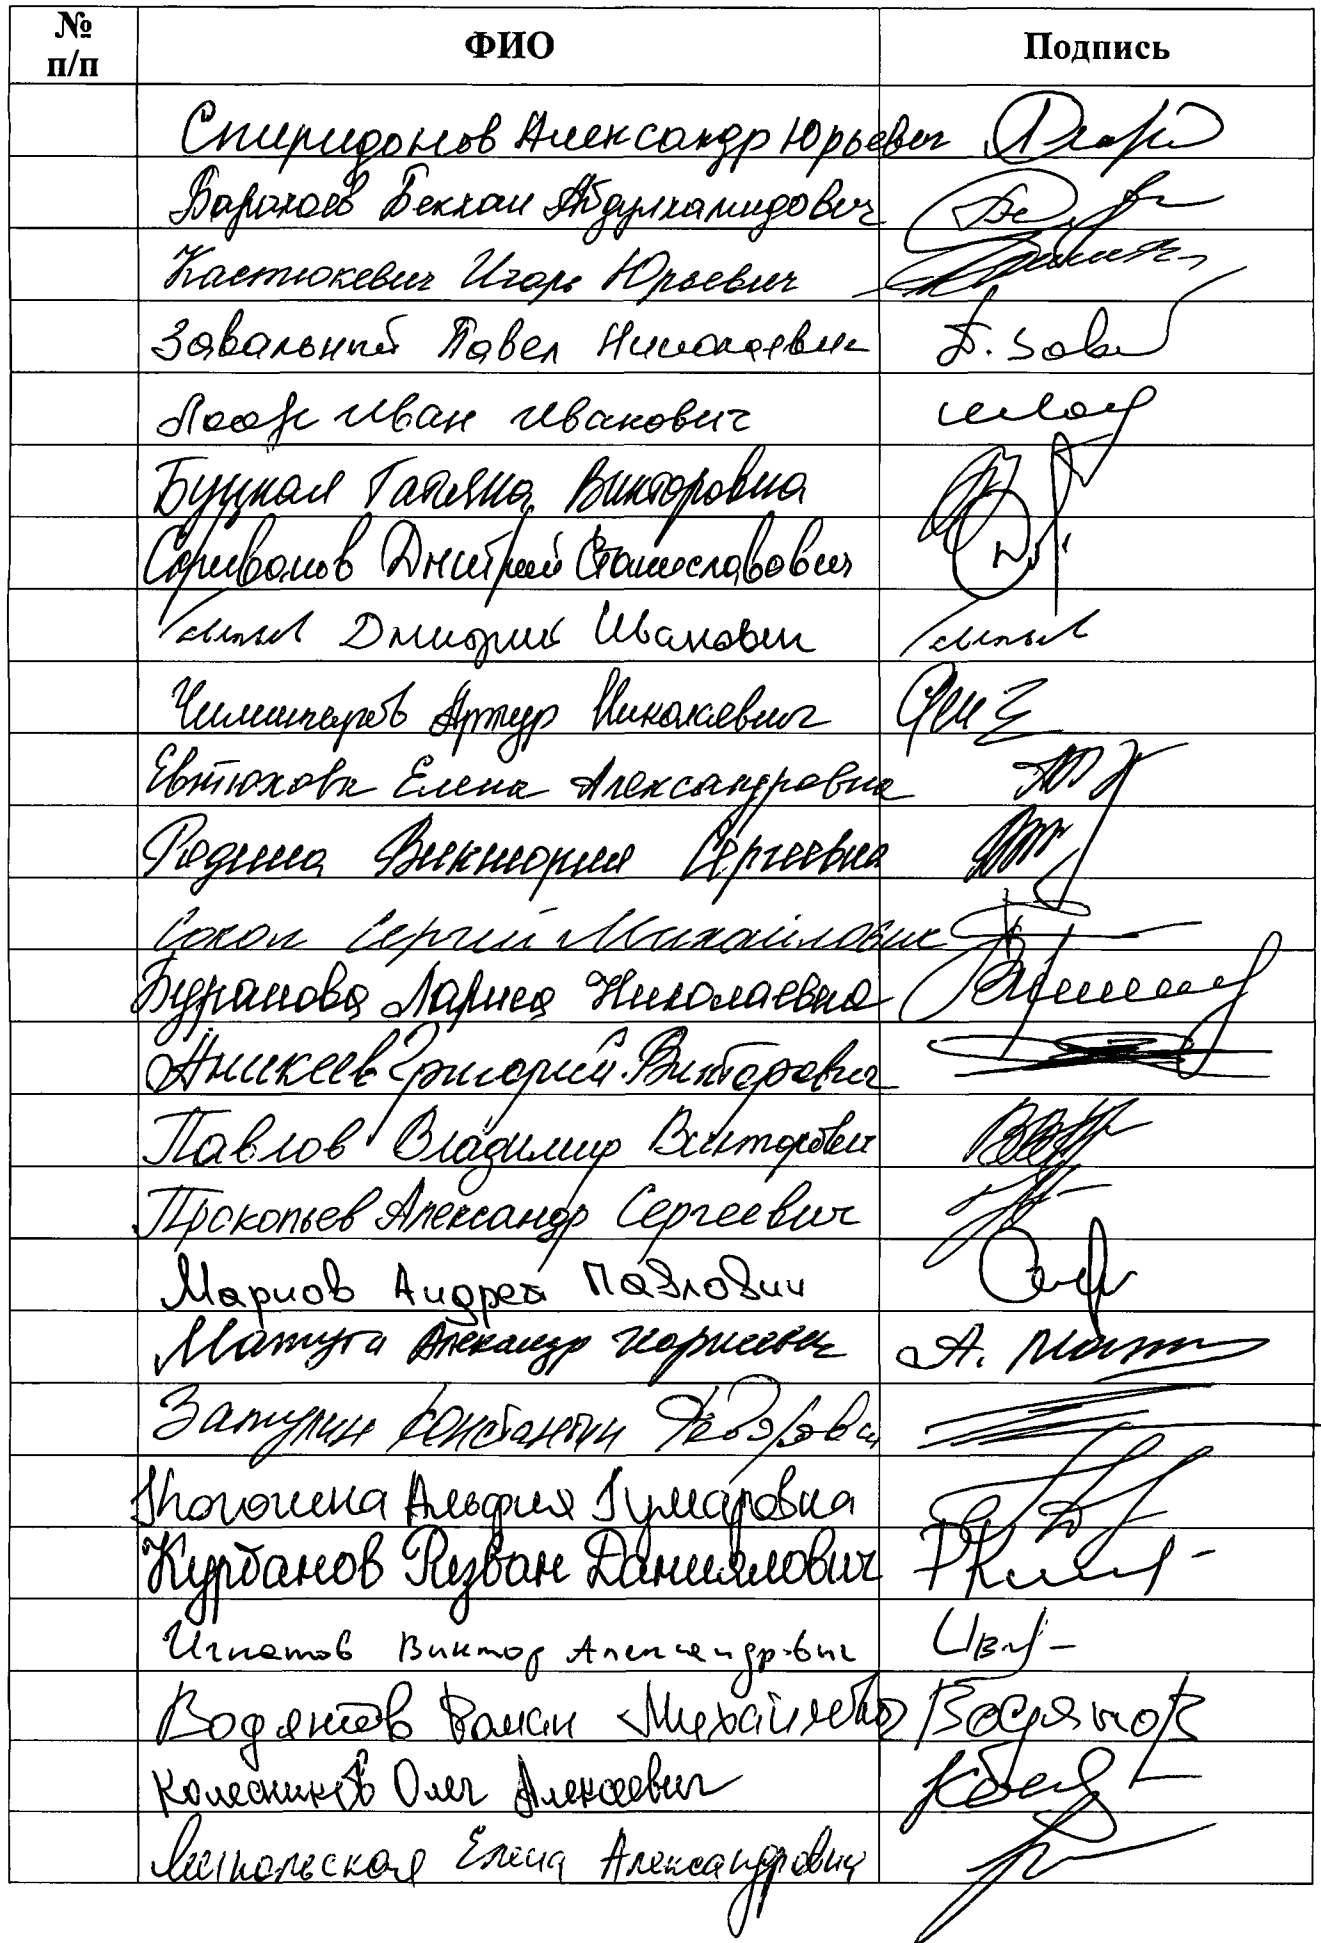 № п/п ФИО Подпись
Спиридонов Александр Юрьевич
Барахоев Бекхан Абдулхамидович
Кастюкевич Игорь Юрьевич
Завальный Павел Николаевич
Лоор Иван Иванович
Буцкая Татьяна Викторовна
Скриванов Дмитрий Станиславович
Дмитрий Иванович
Чилингаров Артур Николаевич
Евтюхова Елена Александровна
Родина Виктория Сергеевна
Сокол Сергей Михайлович
Буранова Лариса Николаевна
Аникеев Григорий Викторович
Павлов Владимир Викторович
Прокопьев Александр Сергеевич
Марков Андрей Павлович
Матуга Александр
Затулин Константин Фёдорович
Когогина Альфия Гумаровна
Курбанов Ризван Даниялович
Игнатов Виктор Александрович
Водянов Роман Михайлович Водянов
Колесников Олег Алексеевич
Елена Александровна